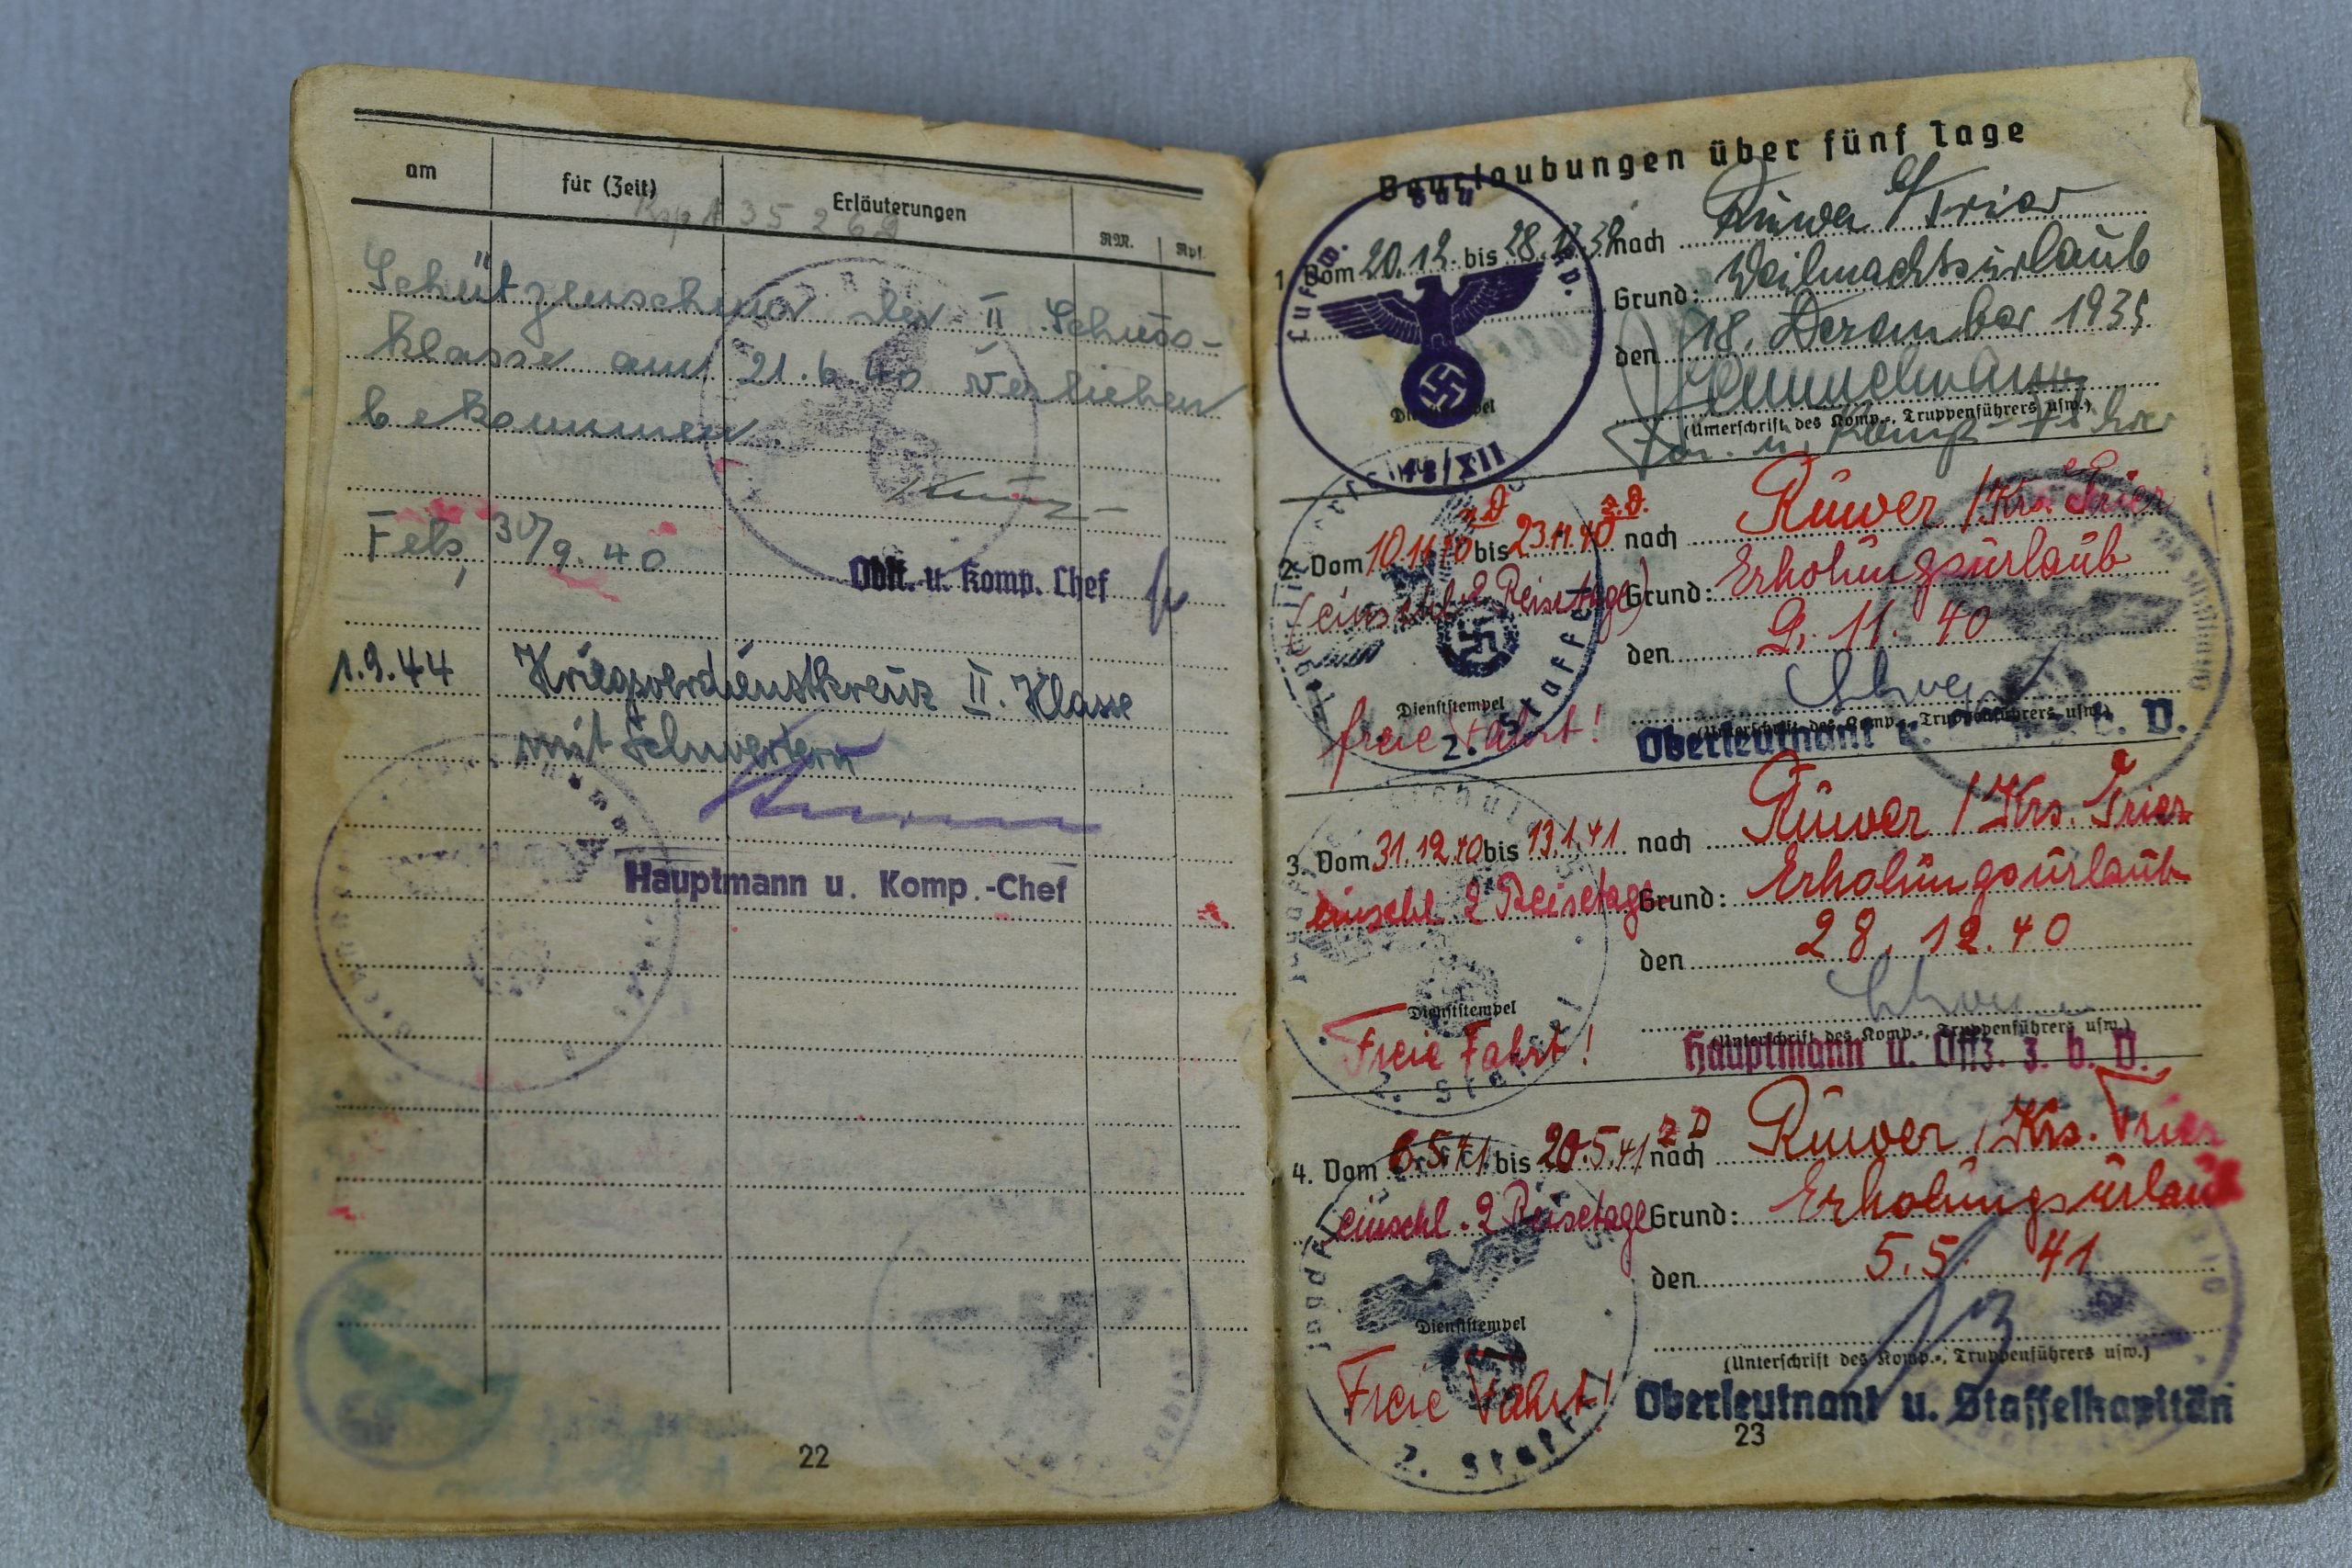 am für (Zeit) Erläuterungen RM. Rpf.
35 262
Schützenschnur der II Schuss-
klasse am 21.6.40 verliehen
bekommen.
Fels, 30/9.40
Oblt. u. Komp. Chef
1.9.44 Kriegsverdienstkreuz II. Klasse
mit Schwertern
Hauptmann u. Komp.-Chef
22
Beurlaubungen über fünf Tage
Luftw. Bau
1. Vom 20.12. bis 28.12.39 nach Ruwer b/Trier
Grund: Weihnachtsurlaub
den 18. Dezember 1939
Dienststempel
(Unterschrift des Komp.-, Truppenführers usw.)
18/XII
2. Vom 10.11.40 bis 23.11.40 nach Ruwer / Krs. Trier
(einschl. 2 Reisetage) Grund: Erholungsurlaub
den 9. 11. 40
Dienststempel
freie Fahrt!
(Unterschrift des Komp.-, Truppenführers usw.)
2. Staffel
Oberleutnant u. z. b. V.
3. Vom 31.12.40 bis 13.1.41 nach Ruwer / Krs. Trier
einschl. 2 Reisetage Grund: Erholungsurlaub
den 28. 12. 40
Dienststempel
Freie Fahrt!
(Unterschrift des Komp.-, Truppenführers usw.)
2. Staffel
Hauptmann u. Offz. z. b. V.
4. Vom 6.5.41 bis 20.5.41 nach Ruwer / Krs. Trier
einschl. 2 Reisetage Grund: Erholungsurlaub
den 5.5. 41
Dienststempel
Freie Fahrt!
(Unterschrift des Komp.-, Truppenführers usw.)
2. Staffel
Oberleutnant u. Staffelkapitän
23